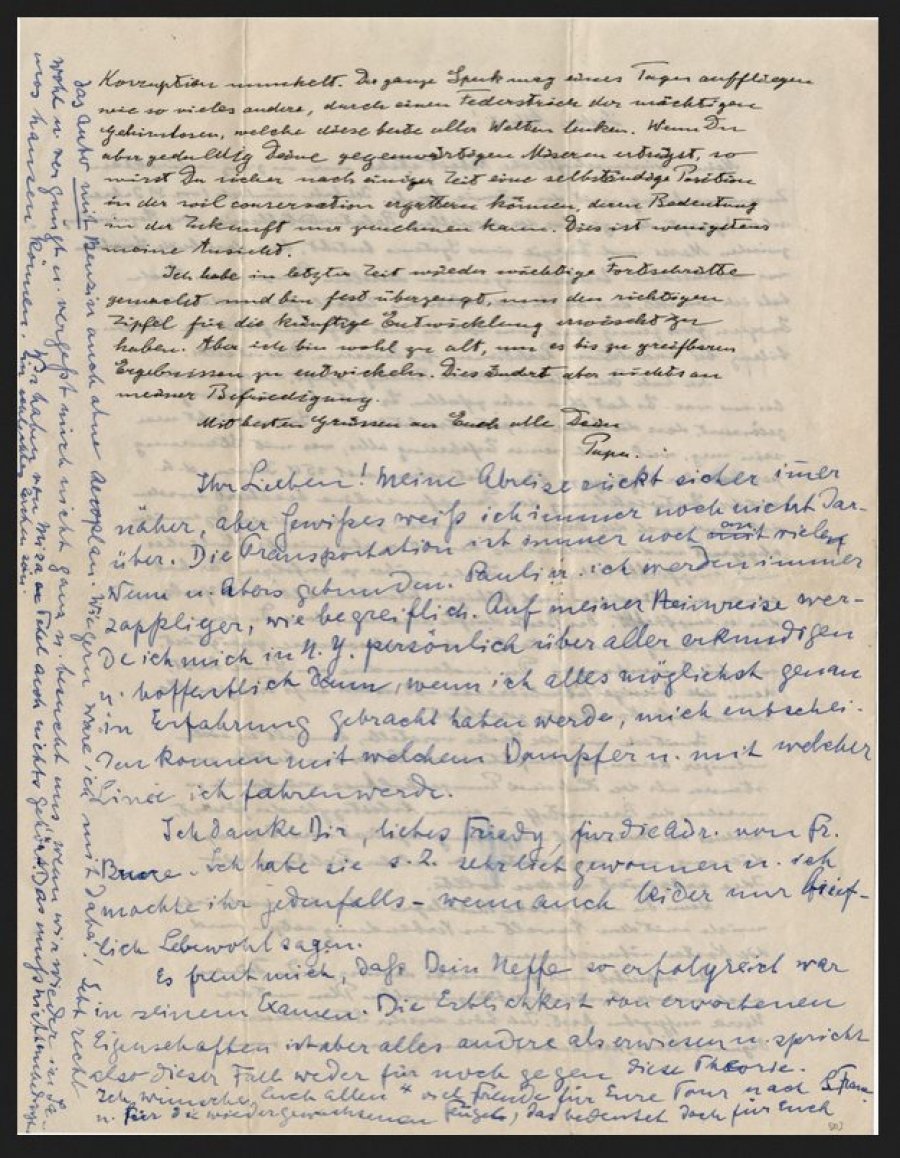 Korruption munkelt. Der ganze Spuk mag eines Tages auffliegen
wie so vieles andere, durch einen Federstrich der mächtigen
Gehirnlosen, welche diese beste aller Welten lenken. Wenn Du
aber geduldig Deine gegenwärtigen Miseren erträgst, so
wirst Du sicher nach einiger Zeit eine selbständige Position
in der soil conservation ergattern können, deren Bedeutung
in der Zukunft nur zunehmen kann. Dies ist wenigstens
meine Ansicht.
Ich habe in letzter Zeit wieder wichtige Fortschritte
gemacht und bin fest überzeugt, nun den richtigen
Zipfel für die künftige Entwicklung erwischt zu
haben. Aber ich bin wohl zu alt, um es bis zu greifbaren
Ergebnissen zu entwickeln. Dies ändert aber nichts an
meiner Befriedigung.
Mit besten Grüssen an Euch alle Dein
Papa.
Ihr Lieben! Meine Abreise rückt sicher imer
näher, aber Gewißes weiß ich immer noch nicht dar-
über. Die Transportation ist immer noch an viele
Wenn u. Abers gebunden. Pauli u. ich werden immer
zappliger, wie begreiflich. Auf meiner Heimreise wer-
de ich mich in N. Y. persönlich über alles erkundigen
u. hoffentlich dann, wenn ich alles möglichst genau
in Erfahrung gebracht haben werde, mich entschei-
den können mit welchem Dampfer u. mit welcher
Linie ich fahren werde.
Ich danke Dir, liebes Friedy, für die Adr. von Fr.
ich habe sie s. Z. sehr lieb gewonnen u. ich
möchte ihr jedenfalls - wenn auch leider nur brief-
lich Lebewohl sagen.
Es freut mich, daß Dein Neffe so erfolgreich war
in seinem Examen. Die Erblichkeit von erworbenen
Eigenschaften ist aber alles andere als erwiesen u. spricht
also dieser Fall weder für noch gegen diese Theorie.
Ich wünsche Euch allen viel Freude für Eure Tour nach S. Fran.
u. für die wiedergewachsenen Flügel, das bedeutet doch für Euch
das Auto mit Benzin auch ohne Aeroplan. Wie gern wäre ich mit dabei! Lebt recht
wohl u. vergnügt u. vergeßt mich nicht ganz u. besucht uns, wenn wir wieder in
hausen können. Wir haben von Miza an Tedel auch nichts gehört. Das muß nichts